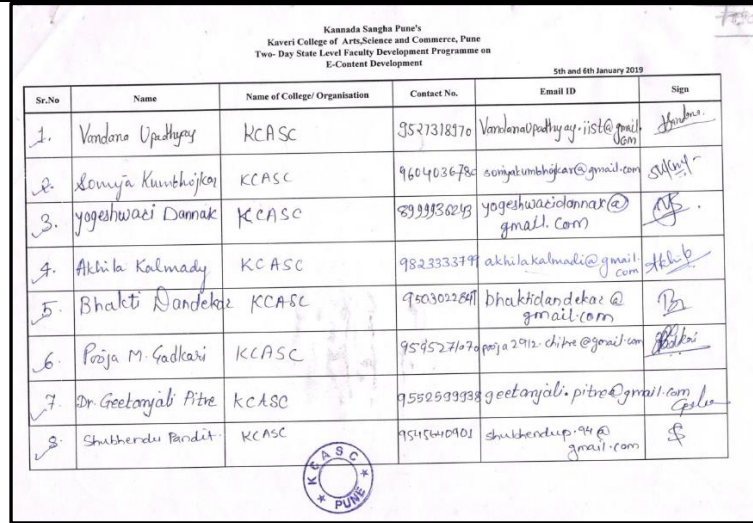 Kannada Sangha Pune's
Kaveri College of Arts,Science and Commerce, Pune
Two- Day State Level Faculty Development Programme on
E-Content Development
5th and 6th January 2019
Sr.No Name Name of College/ Organisation Contact No. Email ID Sign
1. Vandana Upadhyay KCASC 9527318970 VandanaUpadhyay.iist@gmail.com
2. Somja Kumbhojkar KCASC 9604036780 somjakumbhojkar@gmail.com
3. yogeshwari Dannak KCASC 8999936243 yogeshwaridannak@
gmail.com
4. Akhila Kalmady KCASC 9823333799 akhilakalmadi@gmail.com
5. Bhakti Dandekar KCASC 9503022841 bhaktidandekar@
gmail.com
6. Pooja M. Gadkari KCASC 9595271070 pooja2912.chitre@gmail.com
7. Dr. Geetanjali Pitre KCASC 9552599938 geetanjali.pitre@gmail.com
8. Shubhendu Pandit. KCASC 9545640901 shubhendup.94@
gmail.com
KCASC
PUNE